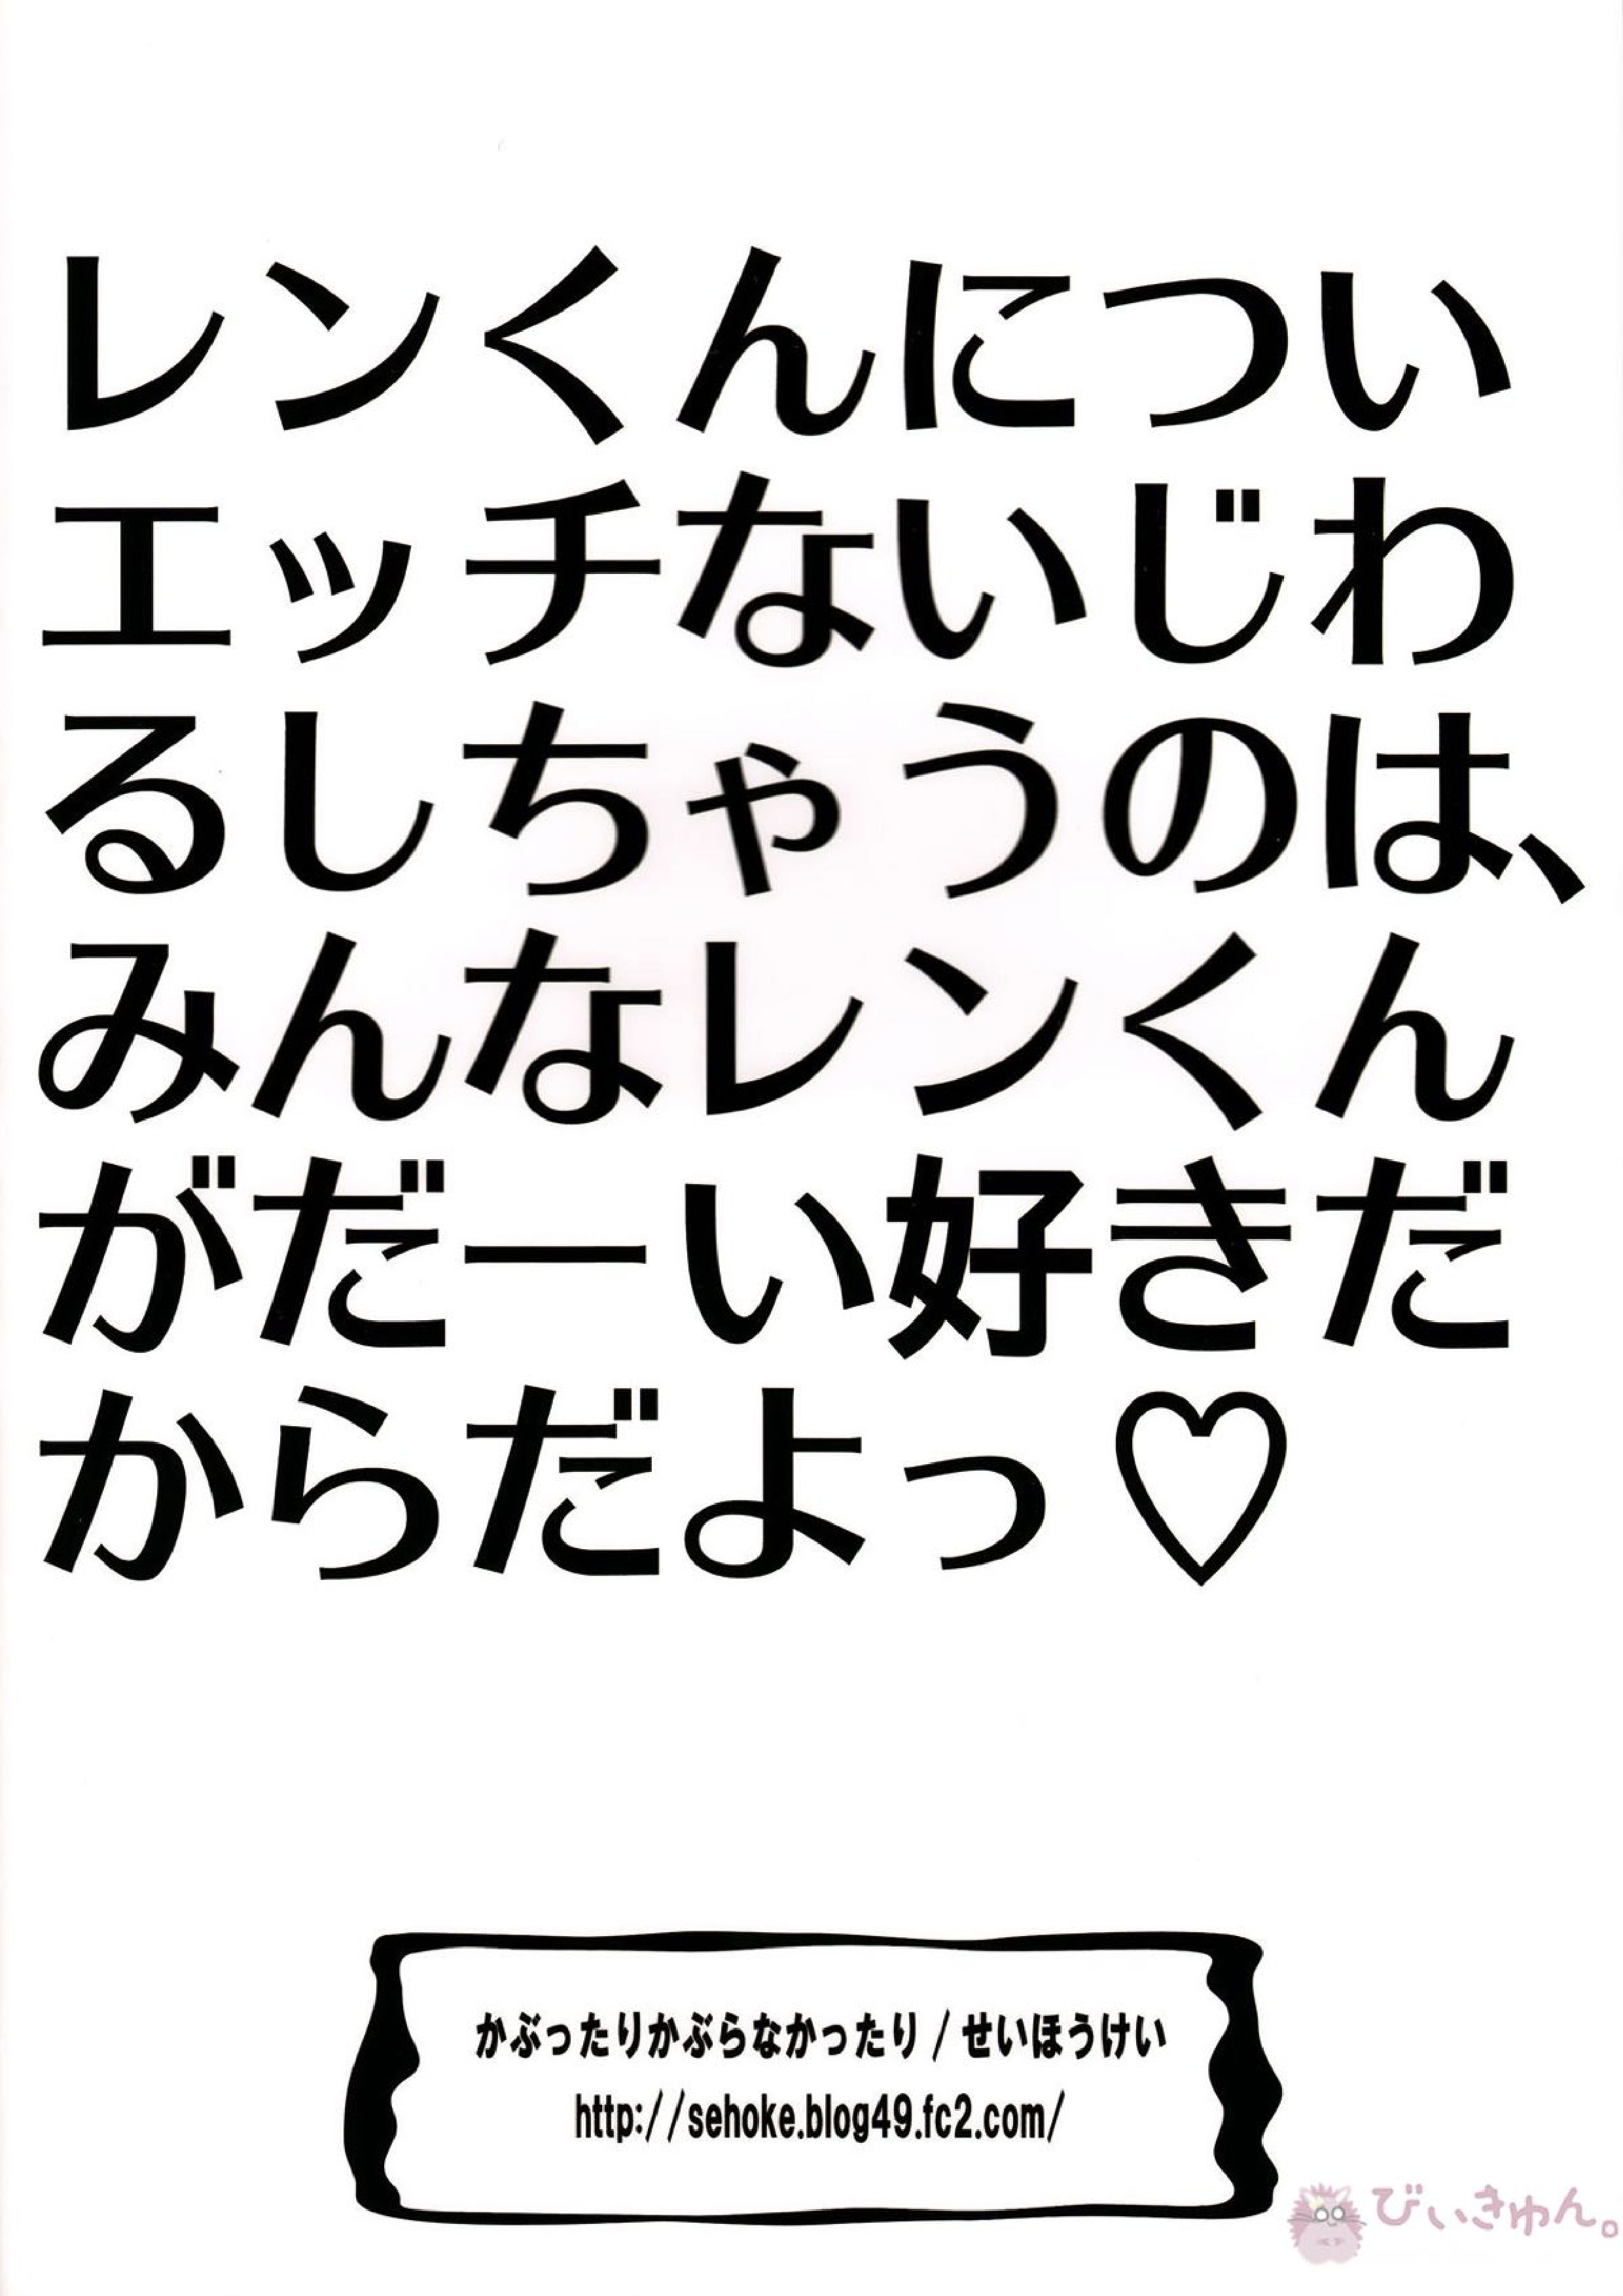 レンくんについ
エッチないじわ
るしちゃうのは、
みんなレンくん
がだーい好きだ
からだよっ♡
かぶったりかぶらなかったり / せいほうけい
http://sehoke.blog49.fc2.com/
びぃきゅん。